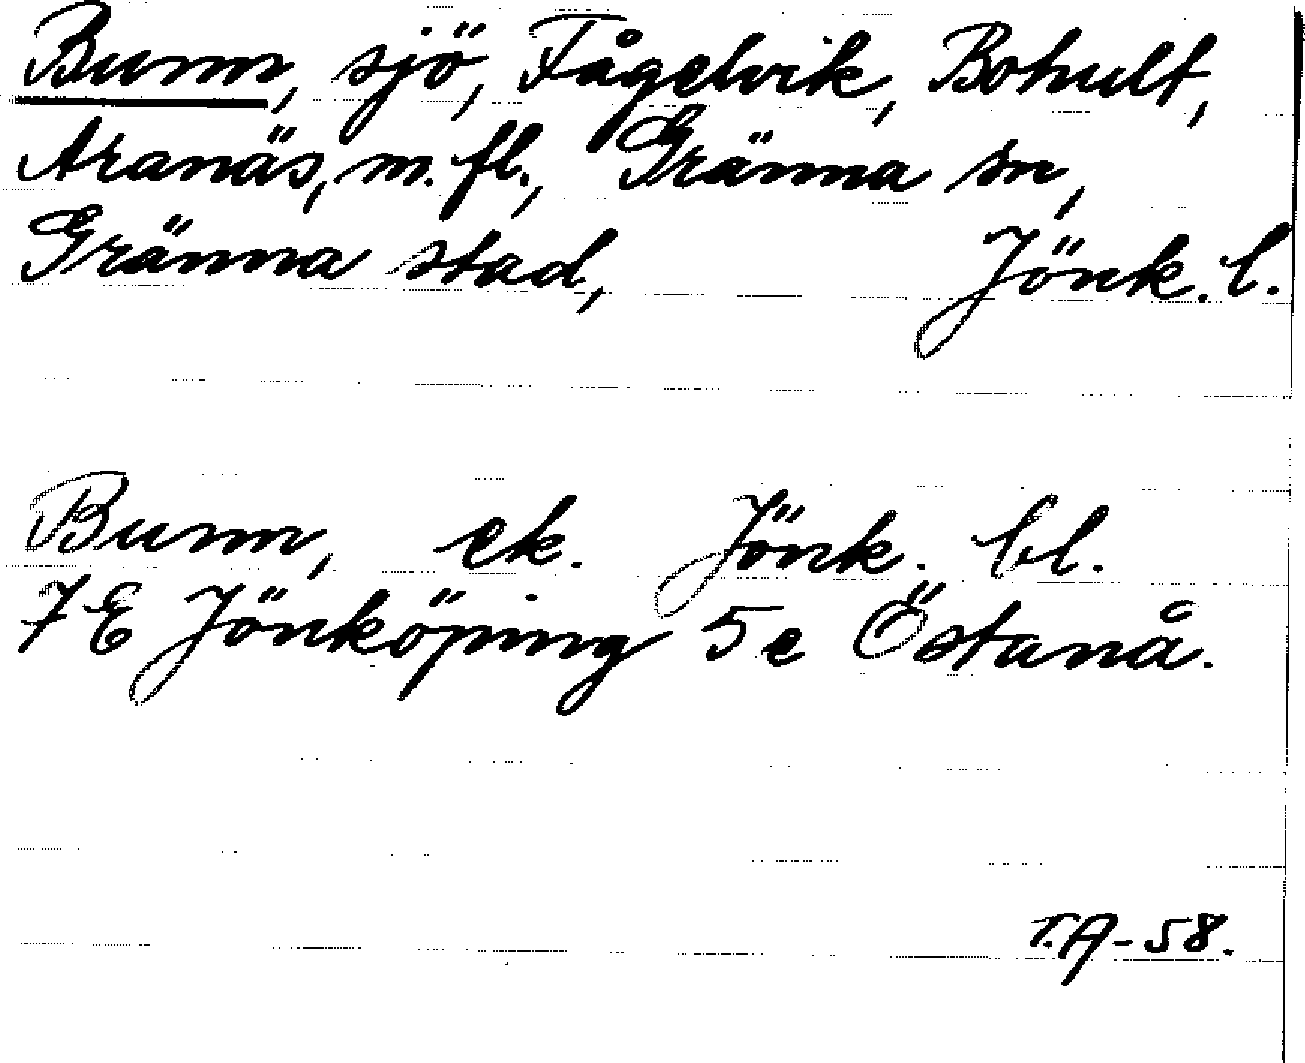 Bunn, sjö, Fågelvik, Bohult,
Aranäs, m. fl., Gränna sn,
Gränna stad, Jönk. l.
Bunn, ek. Jönk. bl.
7 E Jönköping 5e Östanå.
T.A-58.